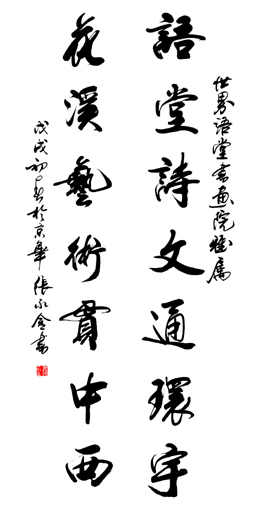 世界語堂書画院雅属
語堂詩文通環宇
花溪藝術貫中西
戊戌初於京華張永書